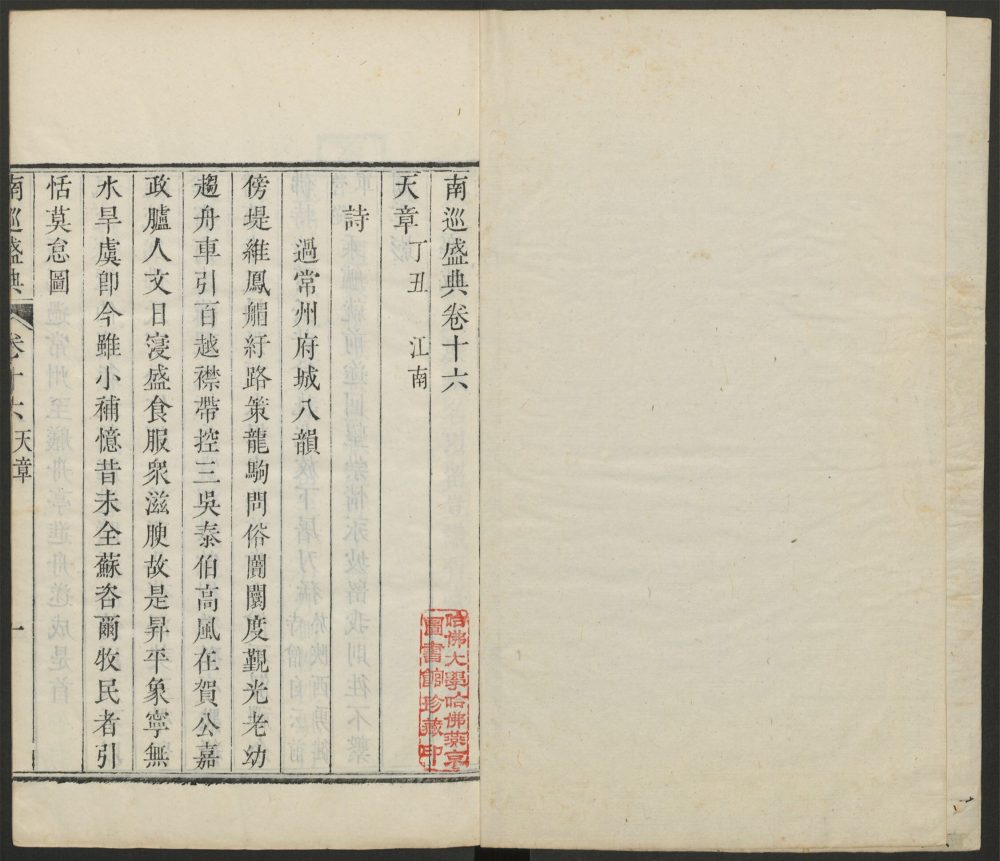 南巡盛典卷十六
天章 丁丑 江南
詩
過常州府城八韻
傍堤維鳳艒紆路策龍駒問俗闤闠度覲光老幼
趨舟車引百越襟帶控三吳泰伯高風在賀公嘉
政臚人文日寖盛食服衆滋腴故是昇平象寧無
水旱虞卽今雖小補憶昔未全蘇咨爾牧民者引
恬莫怠圖
南巡盛典 卷十六 天章 一
哈佛大學哈佛燕京
圖書館珍藏印